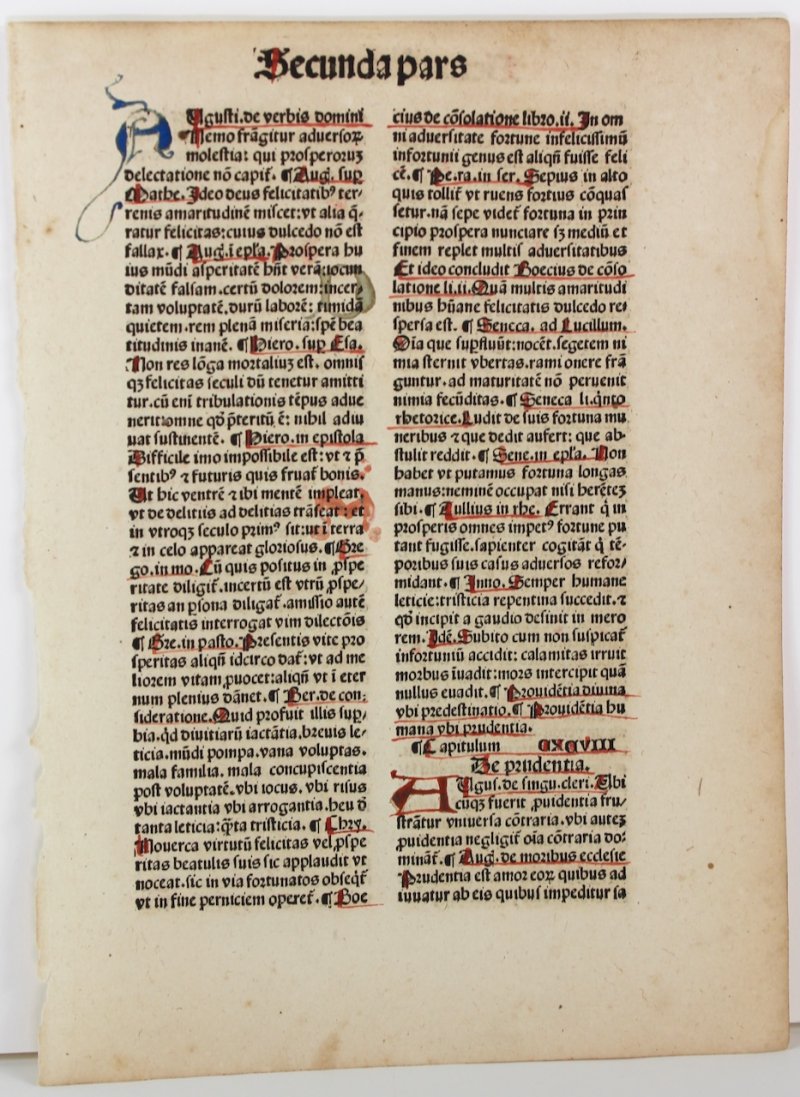 Secunda pars
AUgusti.de verbis domini
Nemo frãgitur aduersoꝝ
molestia: qui prosperoruꝫ
delectatione nõ capit̃. ¶ Aug. sup̃
Mathe. Ideo deus felicitatibꝰ ter-
renis amaritudinẽ miscet:vt alia q̃-
ratur felicitas:cuius dulcedo nõ est
fallax. ¶ Aug.ĩ epl̃a. Prospera hu
ius mũdi asperitatẽ hñt verã:iocun
ditatẽ falsam.certũ dolorem:incer-
tam voluptatẽ.durũ laborẽ: timidã
quietem.rem plenã miseria:spẽ bea
titudinis inanẽ. ¶ Hiero. sup̃ Esa.
Non res lõga mortaliuꝫ est. omnis
qꝫ felicitas seculi dũ tenetur amitti
tur.cũ enĩ tribulationis tẽpus adue
nerit:omne qd̃ p̃teritũ ẽ: nihil adiu
uat sustinentẽ. ¶ Hiero.in epistola
Difficile imo impossibile est:vt ⁊ p̃
sentibꝰ ⁊ futuris quis fruat̃ bonis.
Ut hic ventrẽ ⁊ ibi mentẽ impleat.
vt de delitiis ad delitias trãseat: et
in vtroqꝫ seculo primꝰ sit:ut ĩ terra
⁊ in celo appareat gloriosus. ¶ Gre
go.in mo. Cũ quis positus in ꝓspe
ritate diligit̃.incertũ est vtrũ ꝓspe-
ritas an ꝑsona diligat̃.amissio autẽ
felicitatis interrogat vim dilectõis
¶ Gre.in pasto. Presentis vite pro
speritas aliqñ idcirco dat̃:vt ad me
liorem vitam ꝓuocet:aliqñ vt ĩ eter
num plenius dãnet. ¶ Ber.de con-
sideratione. Quid profuit illis sup̃-
bia.qd̃ diuitiarũ iactãtia.breuis le-
ticia.mũdi pompa.vana voluptas.
mala familia. mala concupiscentia
post voluptatẽ.vbi iocus. vbi risus
vbi iactantia vbi arrogantia.heu d̃
tanta leticia:q̃ta tristicia. ¶ Chry.
Nouerca virtutũ felicitas vel ꝓspe
ritas beatulis suis sic applaudit vt
noceat.sic in via fortunatos obseqt̃
vt in fine perniciem operet̃. ¶ Boe
cius de cõsolatione libro.ii. In om
ni aduersitate fortune infelicissimũ
infortunii genus est aliqñ fuisse feli
cẽ. ¶ Pe.ra.in ser. Sepius in alto
quis tollit̃ vt ruens fortius cõquas
setur.nã sepe videt̃ fortuna in prin
cipio prospera nunciare sꝫ mediũ et
finem replet multis aduersitatibus
Et ideo concludit Boecius de cõso
latione li.ii. Quã multis amaritudi
nibus hũane felicitatis dulcedo re-
spersa est. ¶ Seneca. ad Lucillum.
Oĩa que supfluũt:nocẽt.segetem ni
mia sternit vbertas.rami onere frã
guntur.ad maturitatẽ nõ peruenit
nimia fecũditas. ¶ Seneca li.q̃nto
rhetorice. Ludit de suis fortuna mu
neribus ⁊ que dedit aufert: que ab-
stulit reddit. ¶ Sene.in epl̃a. Non
habet vt putamus fortuna longas
manus:neminẽ occupat nisi herẽteꝫ
sibi. ¶ Tullius in rhe. Errant q̃ in
prosperis omnes impetꝰ fortune pu
tant fugisse.sapienter cogitãt q̃ tẽ-
poribus suis casus aduersos refor-
midant. ¶ Inno. Semper humane
leticie:tristicia repentina succedit.⁊
qd̃ incipit a gaudio desinit in mero
rem. Idẽ. Subito cum non suspicat̃
infortuniũ accidit: calamitas irruit
morbus ĩuadit:mors intercipit quã
nullus euadit. ¶ Prouidẽtia diuina
vbi predestinatio. ¶ Prouidẽtia hu
mana vbi prudentia.
¶ Capitulum CXCVIII
De prudentia.
AUgus.de singu.cleri. Vbi
cũqꝫ fuerit ꝓuidentia fru-
strãtur vniuersa cõtraria.vbi auteꝫ
ꝓuidentia negligit̃ oĩa cõtraria do-
minãt̃. ¶ Aug̃. de moribus ecclesie
Prudentia est amor eoꝝ quibus ad
iuuatur ab eis quibus impeditur sa